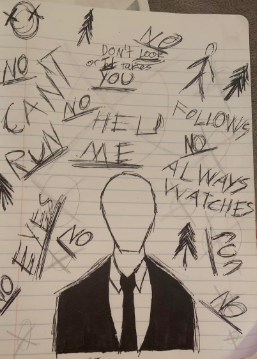 NO
DON'T LOOK
OR IT TAKES
YOU
NO
CAN'T
RUN
NO
HELP
ME
FOLLOWS
NO
ALWAYS
WATCHES
NO
EYES
NO
NO